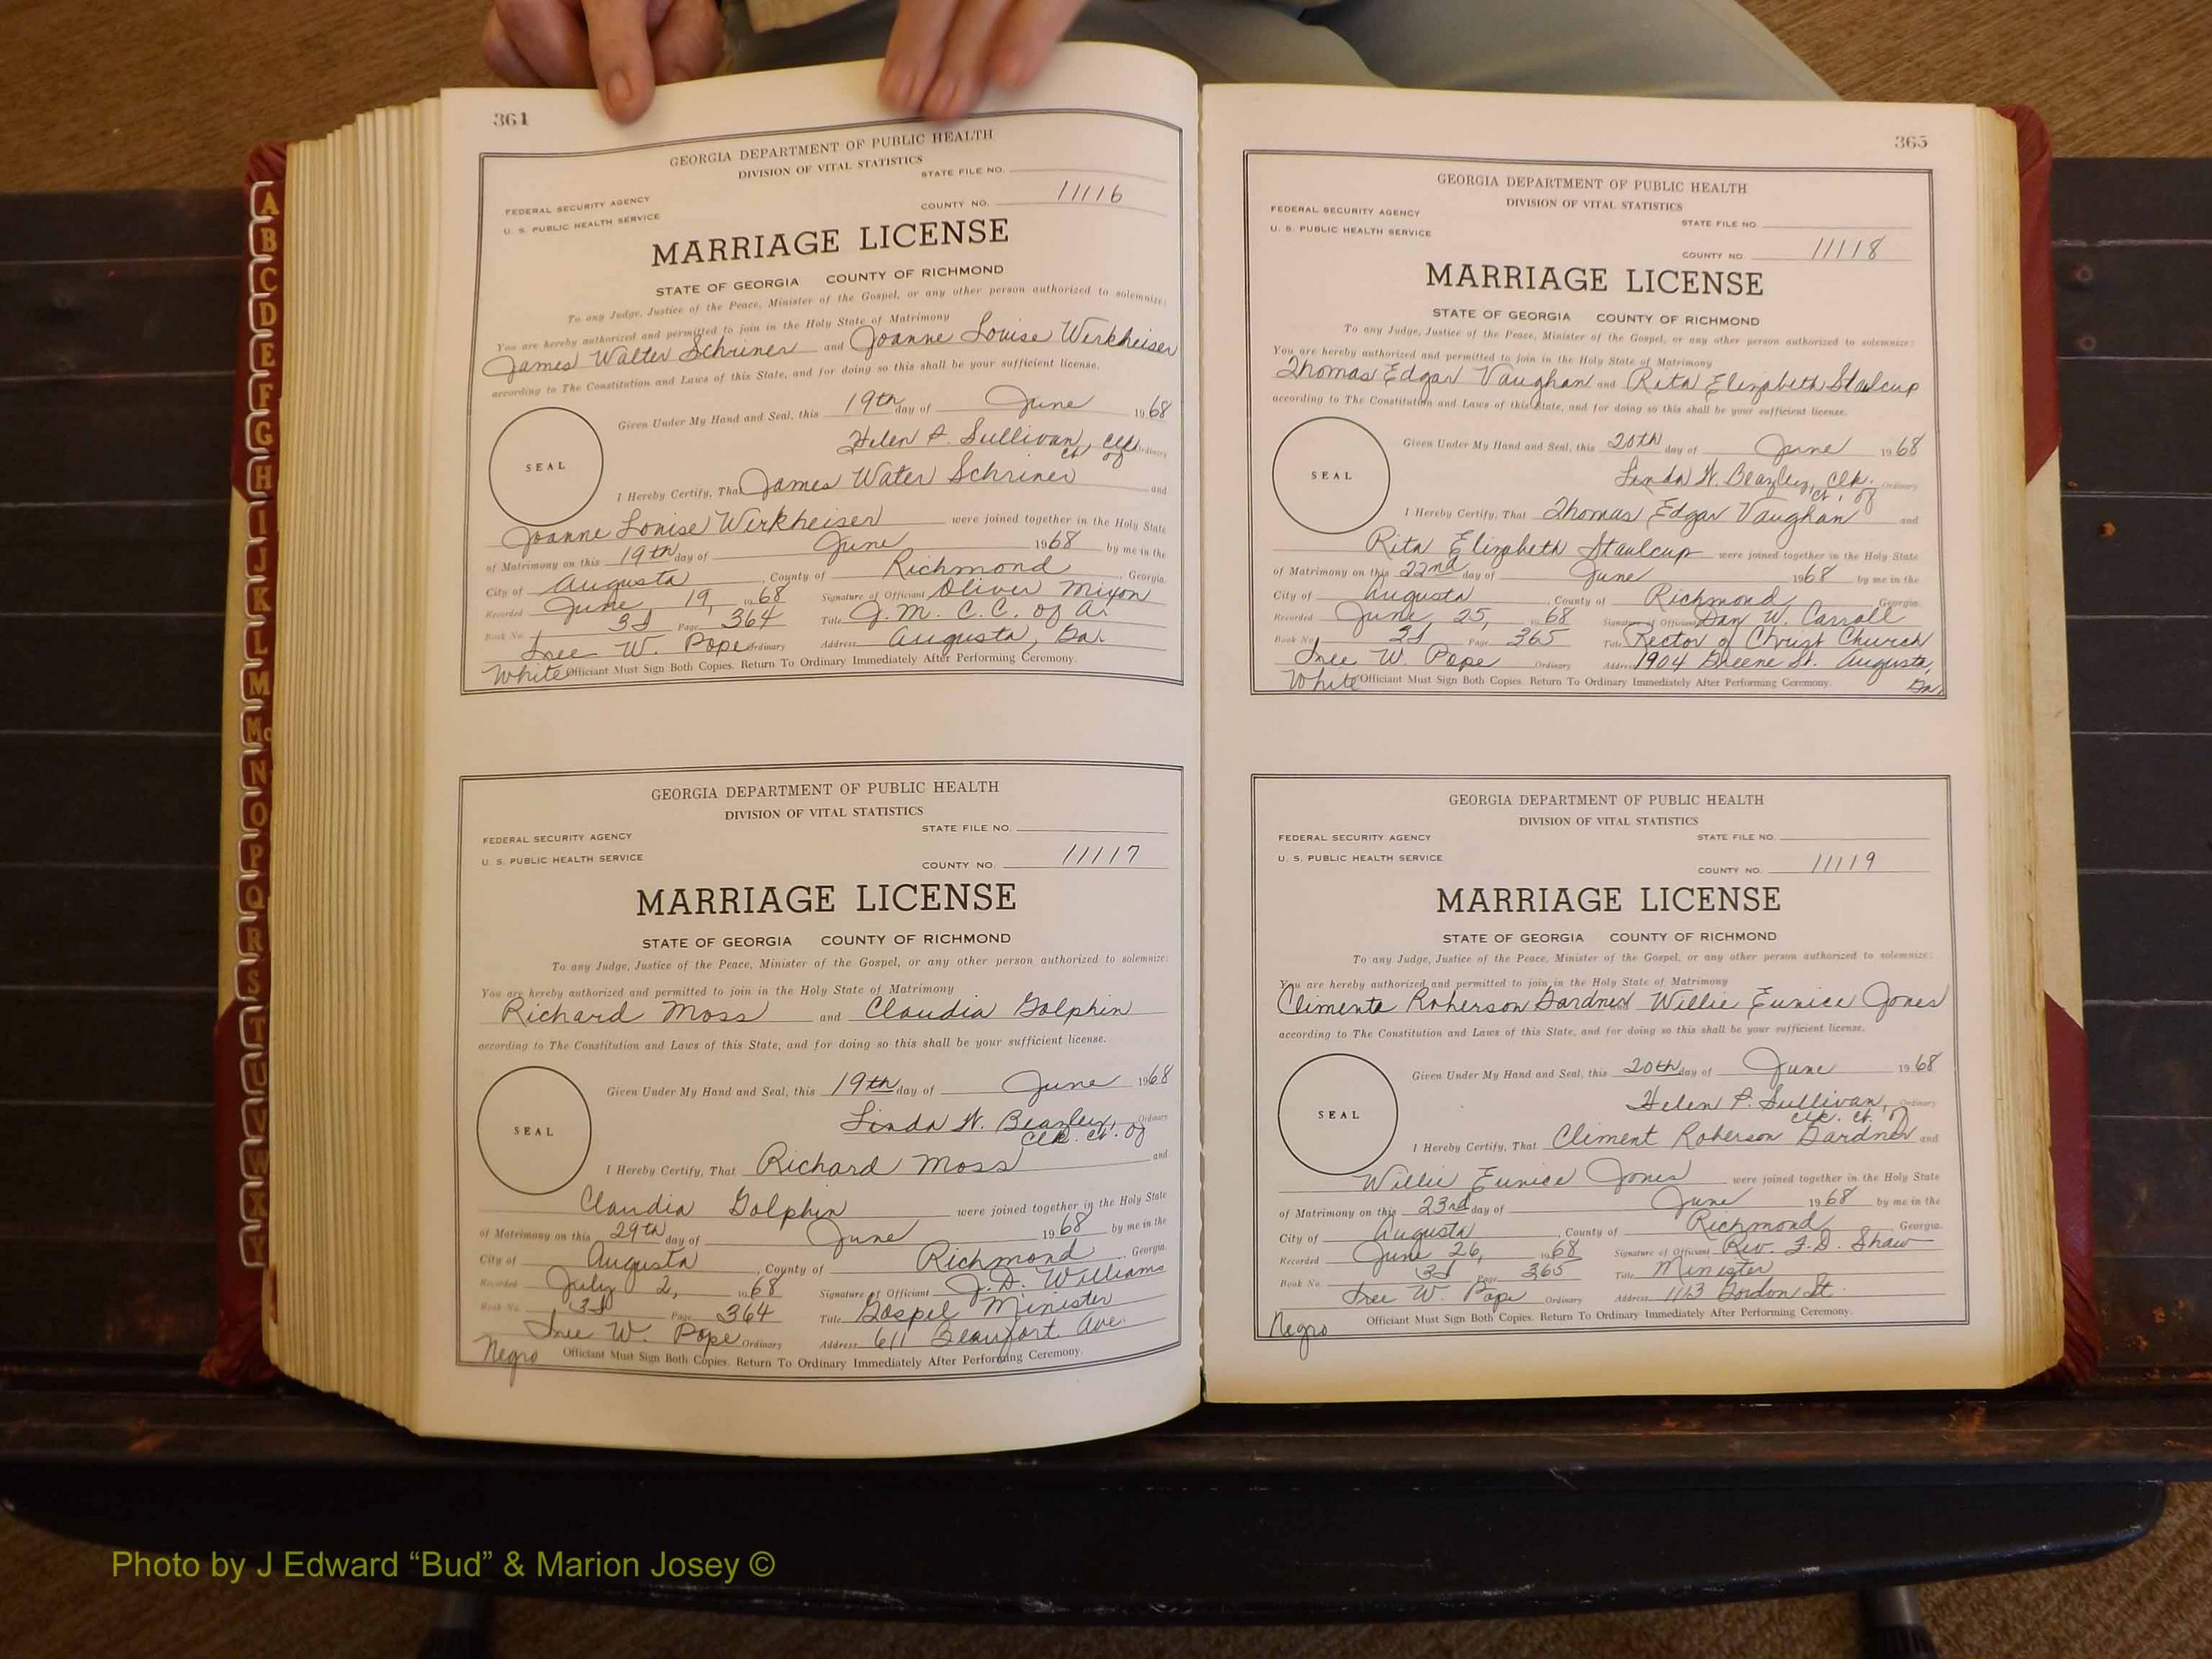 A
B
C
D
E
F
G
H
I
J
K
L
M
Mc
N
O
P
Q
R
S
T
U
V
W
X
Y
364
GEORGIA DEPARTMENT OF PUBLIC HEALTH
DIVISION OF VITAL STATISTICS
STATE FILE NO.
FEDERAL SECURITY AGENCY
U. S. PUBLIC HEALTH SERVICE
COUNTY NO. 11116
MARRIAGE LICENSE
STATE OF GEORGIA COUNTY OF RICHMOND
To any Judge, Justice of the Peace, Minister of the Gospel, or any other person authorized to solemnize:
You are hereby authorized and permitted to join in the Holy State of Matrimony
James Walter Schriner and Joanne Louise Werkheiser
according to The Constitution and Laws of this State, and for doing so this shall be your sufficient license.
Given Under My Hand and Seal, this 19th day of June 1968
Helen P. Sullivan, Clk. Ordinary
ct of
SEAL
I Hereby Certify, That James Water Schriner and
Joanne Louise Werkheiser were joined together in the Holy State
of Matrimony on this 19th day of June 1968 by me in the
City of Augusta, County of Richmond, Georgia.
Recorded June 19, 1968 Signature of Officiant Oliver Mixon
Book No. 3J Page 364 Title J.M. C.C. of A.
Inee W. Pope Ordinary Address Augusta, Ga.
White Officiant Must Sign Both Copies. Return To Ordinary Immediately After Performing Ceremony.
GEORGIA DEPARTMENT OF PUBLIC HEALTH
DIVISION OF VITAL STATISTICS
STATE FILE NO.
FEDERAL SECURITY AGENCY
U. S. PUBLIC HEALTH SERVICE
COUNTY NO. 11117
MARRIAGE LICENSE
STATE OF GEORGIA COUNTY OF RICHMOND
To any Judge, Justice of the Peace, Minister of the Gospel, or any other person authorized to solemnize:
You are hereby authorized and permitted to join in the Holy State of Matrimony
Richard Moss and Claudia Golphin
according to The Constitution and Laws of this State, and for doing so this shall be your sufficient license.
Given Under My Hand and Seal, this 19th day of June 1968
Linda W. Beazley, Ordinary
Clk. ct. of
SEAL
I Hereby Certify, That Richard Moss and
Claudia Golphin were joined together in the Holy State
of Matrimony on this 29th day of June 1968 by me in the
City of Augusta, County of Richmond, Georgia.
Recorded July 2, 1968 Signature of Officiant J.D. Williams
Book No. 3J Page 364 Title Gospel Minister
Inee W. Pope Ordinary Address 611 Beaufort Ave.
Negro Officiant Must Sign Both Copies. Return To Ordinary Immediately After Performing Ceremony.
365
GEORGIA DEPARTMENT OF PUBLIC HEALTH
DIVISION OF VITAL STATISTICS
FEDERAL SECURITY AGENCY
STATE FILE NO.
U. S. PUBLIC HEALTH SERVICE
COUNTY NO. 11118
MARRIAGE LICENSE
STATE OF GEORGIA COUNTY OF RICHMOND
To any Judge, Justice of the Peace, Minister of the Gospel, or any other person authorized to solemnize:
You are hereby authorized and permitted to join in the Holy State of Matrimony
Thomas Edgar Vaughan and Rita Elizabeth Stalcup
according to The Constitution and Laws of this State, and for doing so this shall be your sufficient license.
Given Under My Hand and Seal, this 20th day of June 1968
Linda W. Beazley, Clk. Ordinary
ct. of
SEAL
I Hereby Certify, That Thomas Edgar Vaughan and
Rita Elizabeth Staulcup were joined together in the Holy State
of Matrimony on this 22nd day of June 1968 by me in the
City of Augusta, County of Richmond, Georgia.
Recorded June 25, 1968 Signature of Officiant Day W. Carroll
Book No. 3J Page 365 Title Rector of Christ Church
Inee W. Pope Ordinary Address 1904 Greene St. Augusta, Ga.
White Officiant Must Sign Both Copies. Return To Ordinary Immediately After Performing Ceremony.
GEORGIA DEPARTMENT OF PUBLIC HEALTH
DIVISION OF VITAL STATISTICS
FEDERAL SECURITY AGENCY
STATE FILE NO.
U. S. PUBLIC HEALTH SERVICE
COUNTY NO. 11119
MARRIAGE LICENSE
STATE OF GEORGIA COUNTY OF RICHMOND
To any Judge, Justice of the Peace, Minister of the Gospel, or any other person authorized to solemnize:
You are hereby authorized and permitted to join in the Holy State of Matrimony
Climents Roherson Gardner Willie Eunice Jones
according to The Constitution and Laws of this State, and for doing so this shall be your sufficient license.
Given Under My Hand and Seal, this 20th day of June 1968
Helen P. Sullivan, Ordinary
clk. ct. of
SEAL
I Hereby Certify, That Climent Roherson Gardner and
Willie Eunice Jones were joined together in the Holy State
of Matrimony on this 23rd day of June 1968 by me in the
City of Augusta, County of Richmond, Georgia.
Recorded June 26, 1968 Signature of Officiant Rev. F.D. Shaw
Book No. 3J Page 365 Title Minister
Inee W. Pope Ordinary Address 1113 Gordon St.
Negro Officiant Must Sign Both Copies. Return To Ordinary Immediately After Performing Ceremony.
Photo by J Edward “Bud” & Marion Josey ©